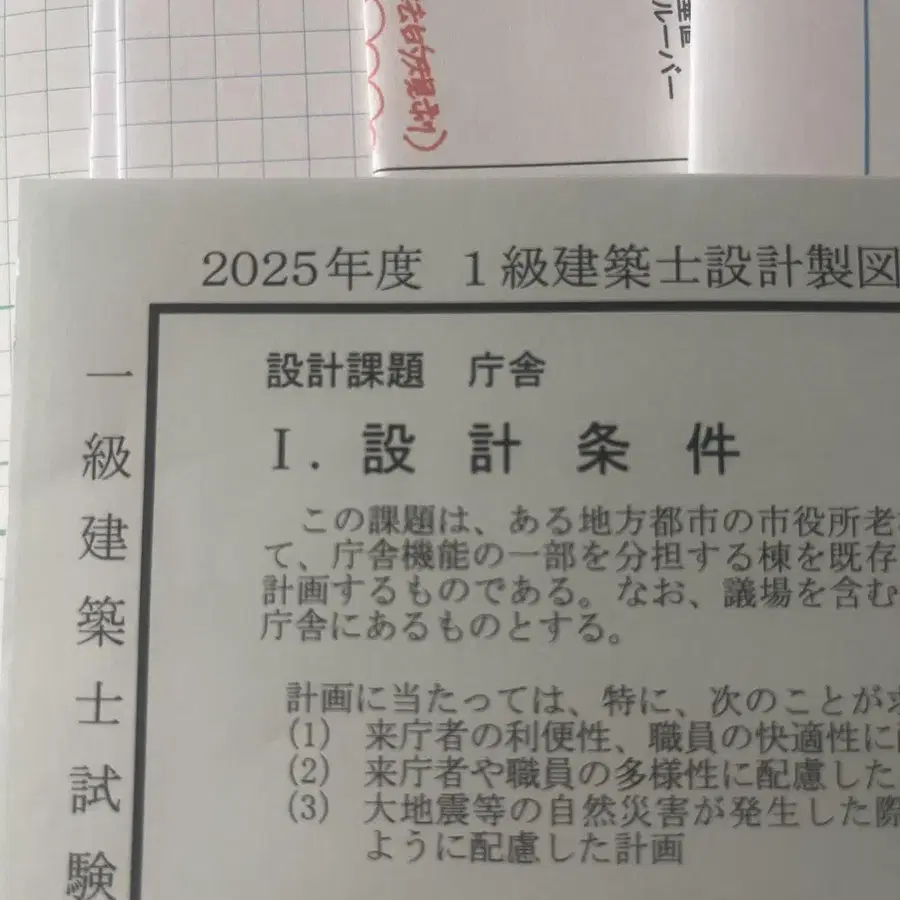 ルーバー
2025年度 1級建築士設計製図
一級建築士試験
設計課題 庁舎
I. 設計条件
この課題は、ある地方都市の市役所老
て、庁舎機能の一部を分担する棟を既存
計画するものである。なお、議場を含む
庁舎にあるものとする。
計画に当たっては、特に、次のことが求
(1) 来庁者の利便性、職員の快適性に
(2) 来庁者や職員の多様性に配慮した
(3) 大地震等の自然災害が発生した際
ように配慮した計画